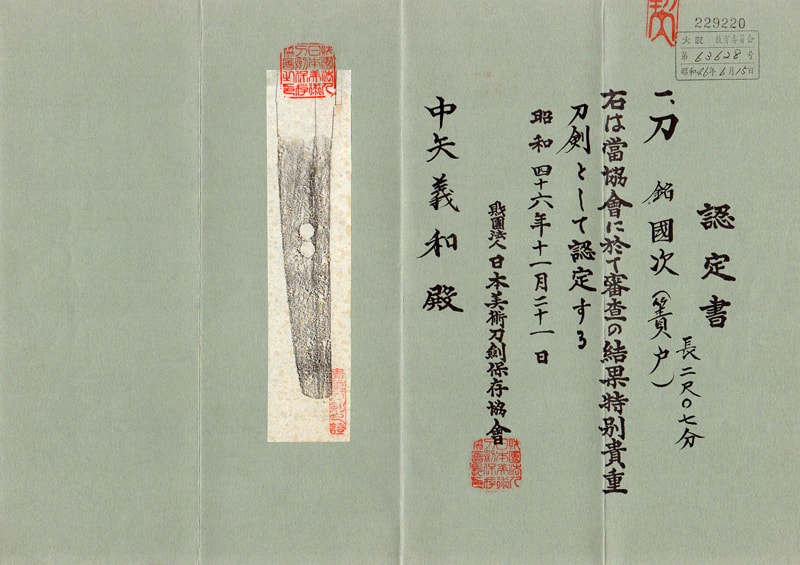 229220
大阪 教育委員会
第 63628 号
昭和46年6月15日
認定書
一、刀 銘 國次(簀戸)
長二尺〇七分
右は當協會に於て審査の結果特別貴重
刀劍として認定する
昭和四十六年十一月二十一日
財團法人日本美術刀劍保存協會
中矢義和殿